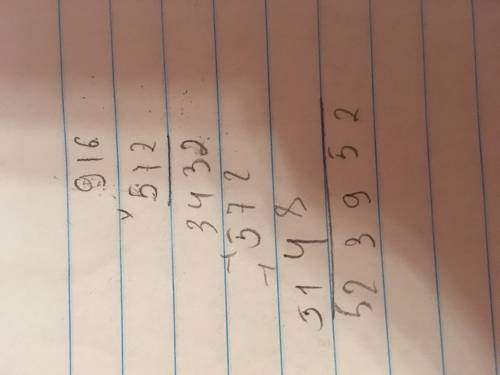 916
× 572
3432
+ 572
+ 5148
523952